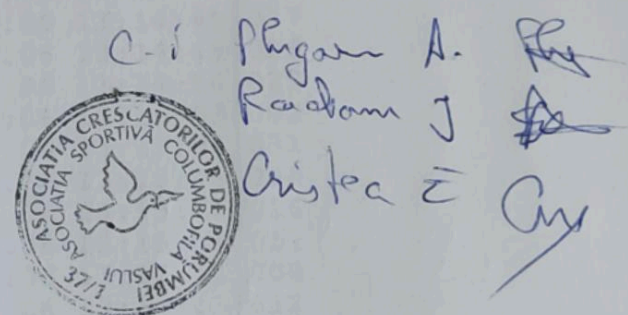 C-i Plugaru A.
Radianu J
Cristea E
ASOCIATIA CRESCATORILOR DE PORUMBEI
ASOCIATIA SPORTIVĂ COLUMBOFILĂ VASLUI
37/1